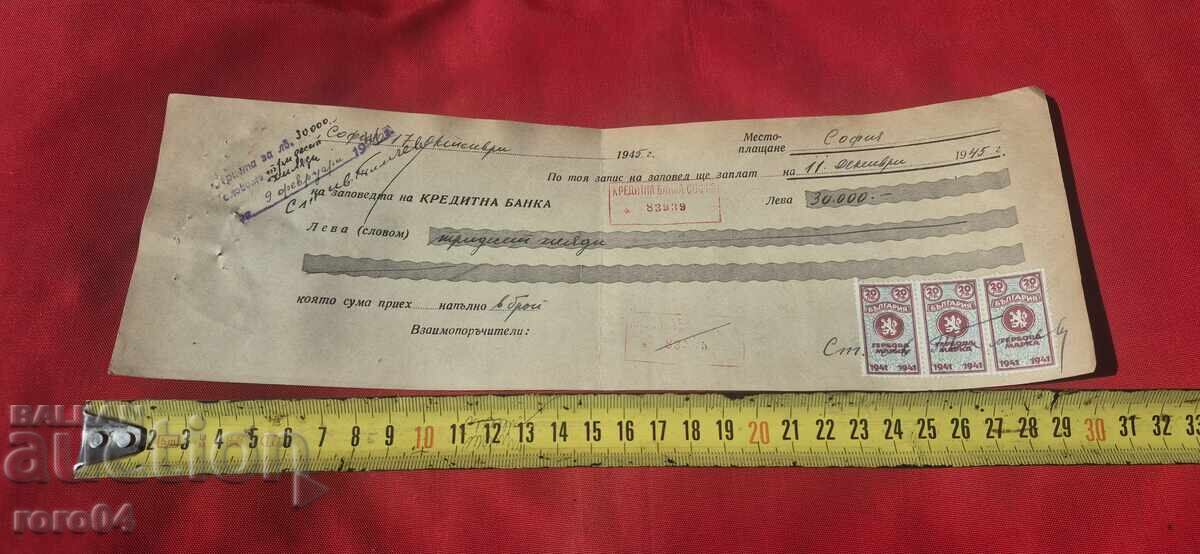 за лв. 30.000.-
словом тридесет
хиляди
9 февруари 194
София, 17 Октомври 1945 г.
Место-
плащане София
По тоя запис на заповед ще заплат на 11 Декември 1945 г.
на заповедта на КРЕДИТНА БАНКА
КРЕДИТНА БАНКА СОФИЯ
* 83939
Лева 30.000.-
Лева (словом) тридесет хиляди
която сума приех напълно в брой
Взаимопоръчители:
Ст.
20 20 20 20 20 20
БЪЛГАРИЯ БЪЛГАРИЯ БЪЛГАРИЯ
ГЕРБОВА ГЕРБОВА ГЕРБОВА
МАРКА МАРКА МАРКА
1941 1941 1941 1941 1941 1941
2 3 4 5 6 7 8 9 10 11 12 13 14 15 16 17 18 19 20 21 22 23 24 25 26 27 28 29 30 31 32 33
BALKAN
auction
roro04